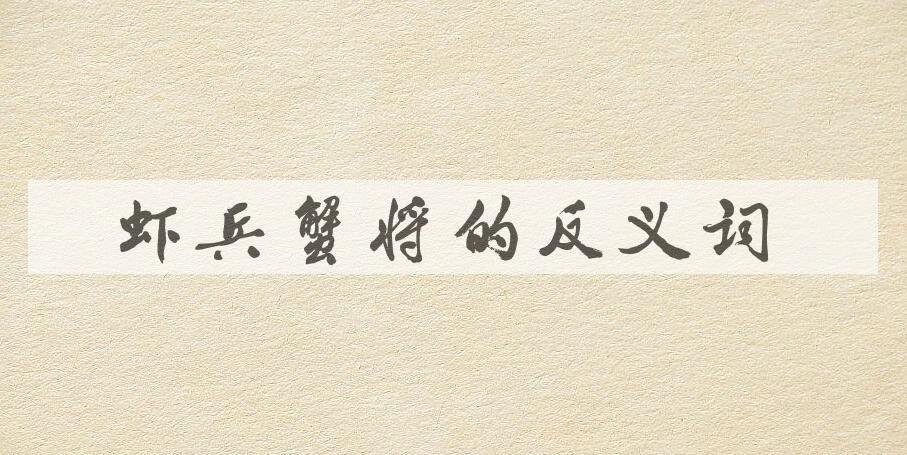 虾兵蟹将的反义词